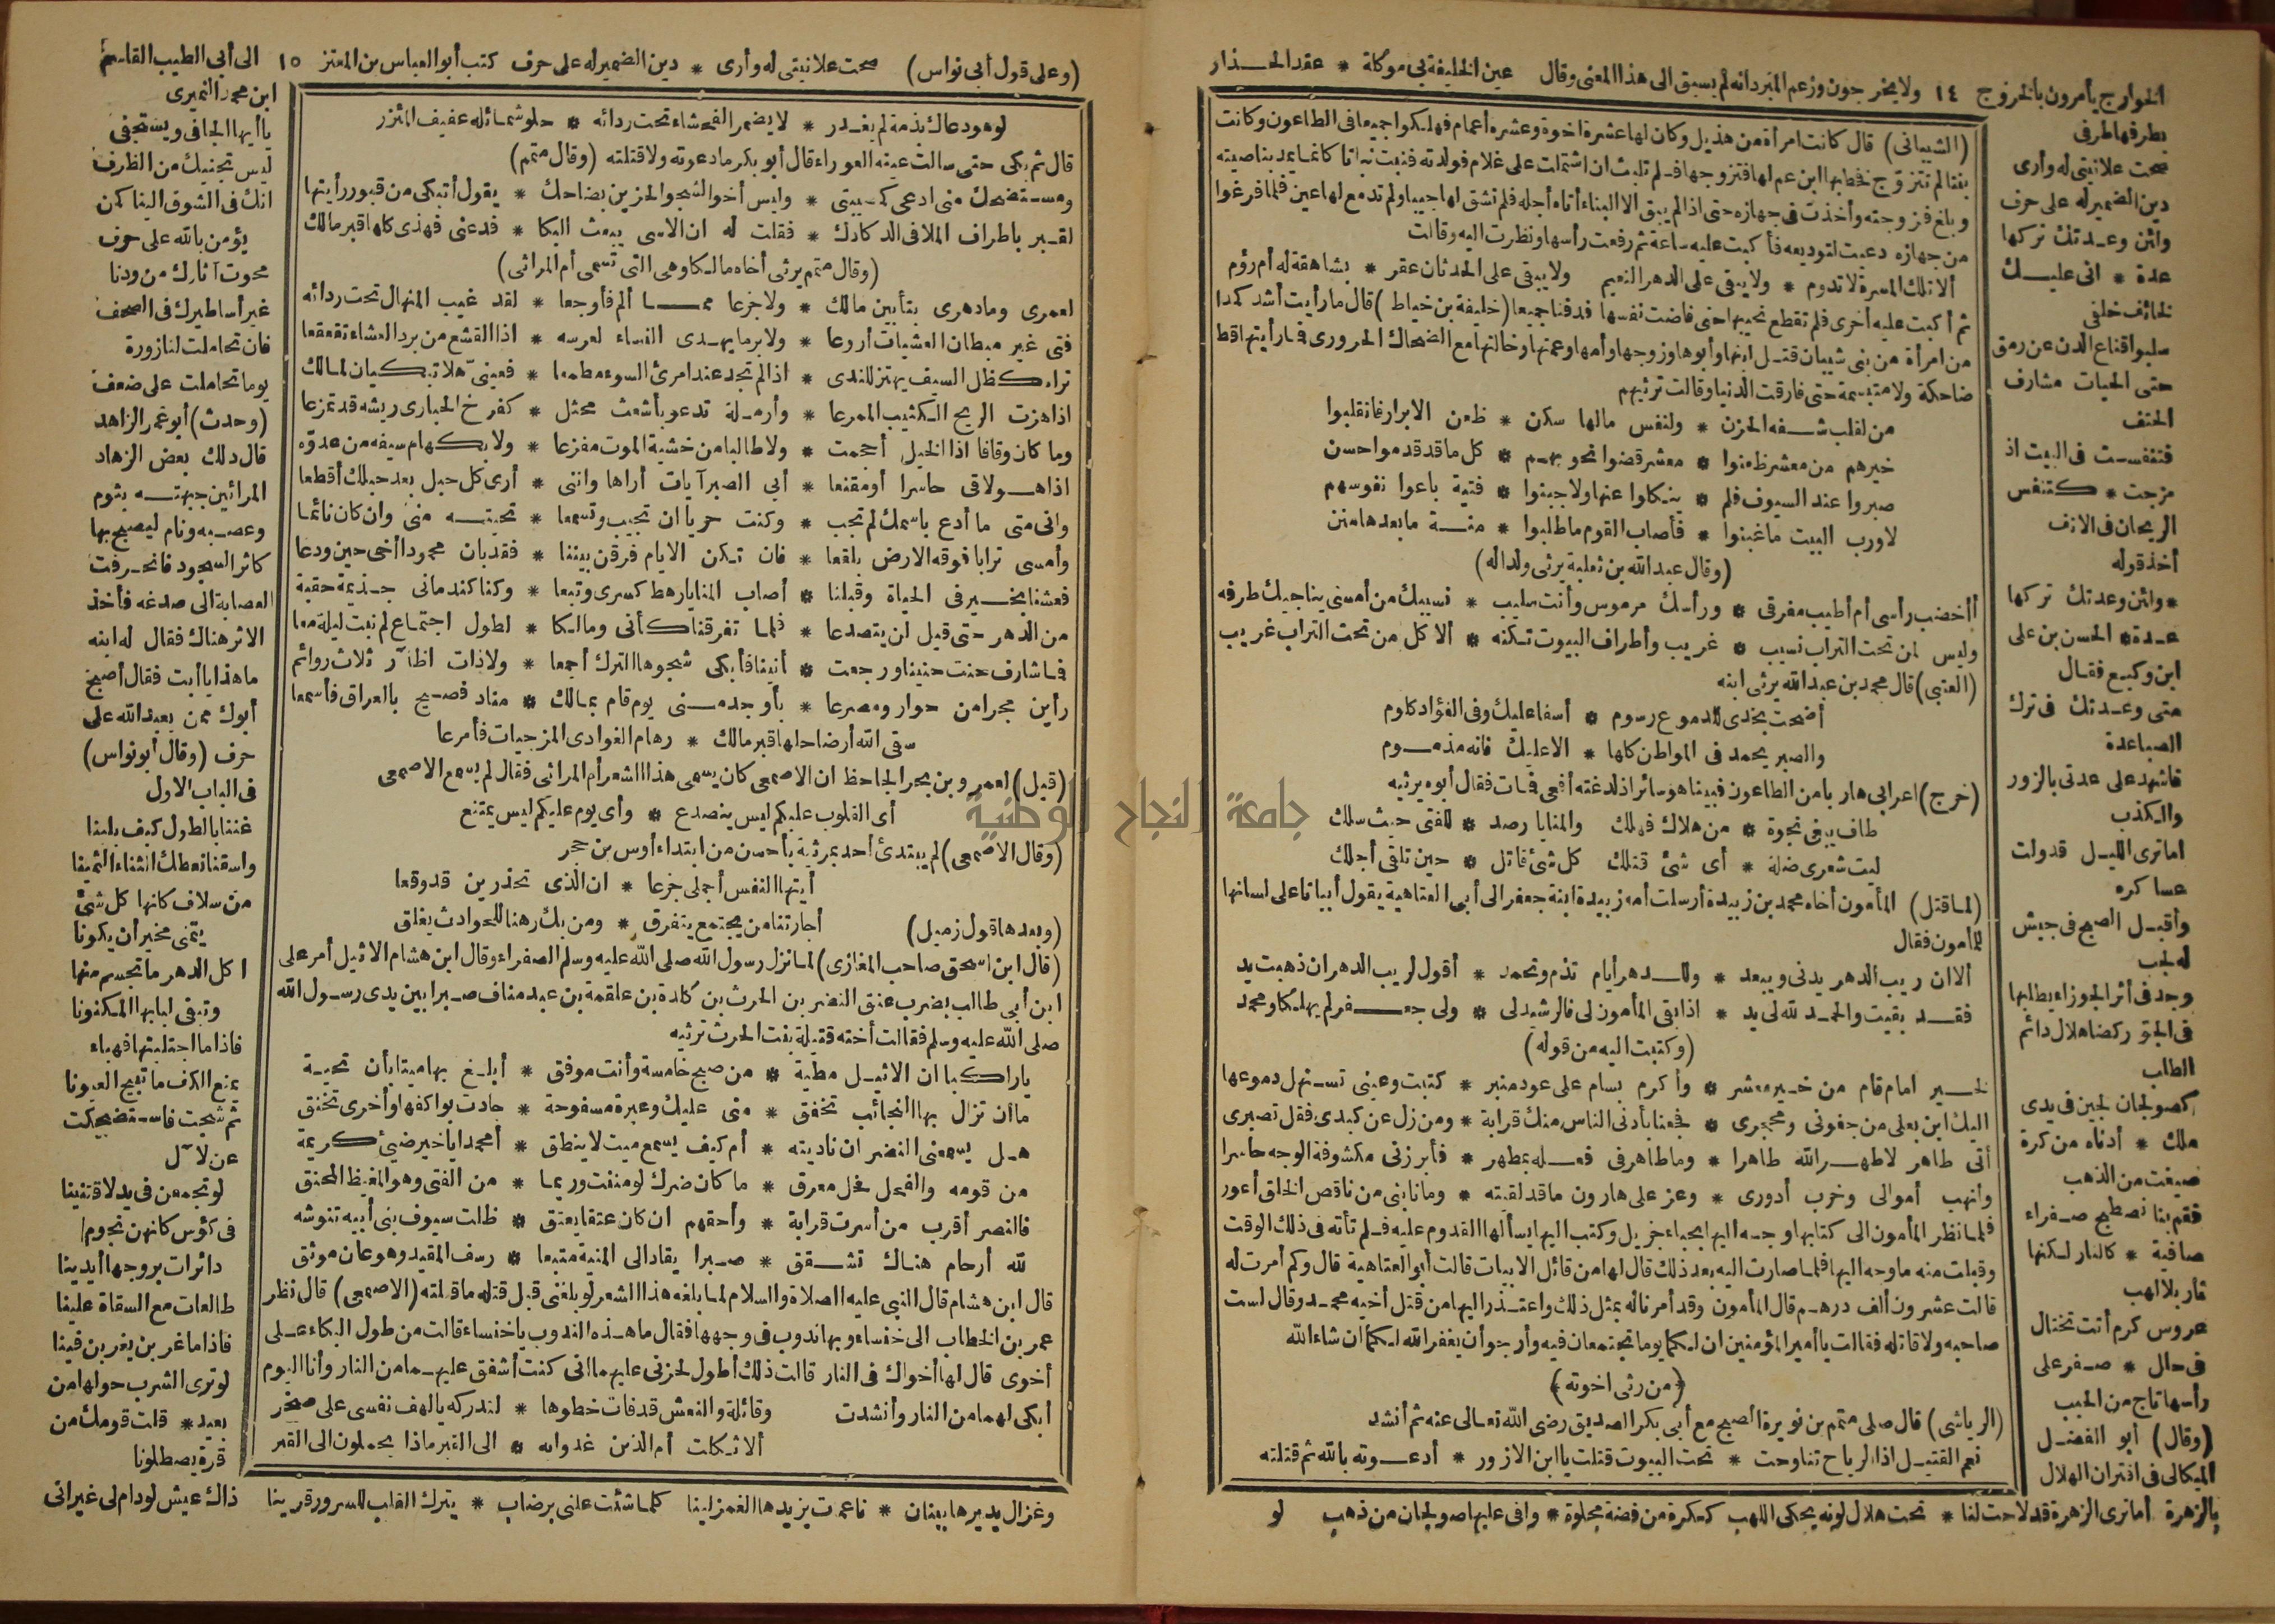 الخوارج يأمرون بالخروج ١٤ ولا يخرجون وزعم المبرد انه لم يسبق الى هذا المعنى وقال عين الخليفة بي موكلة * عقد الحذار
بطرفها طرفى
صحت علانيتى له وأرى
دين الضمير له على حرف
ولئن وعدتك تركها
عدة * انى عليك
لخائف خلفى
سلبوا قناع الدن عن رمق
حتى الحياة مشارف
الحتف
فتنفست فى البيت اذ
مزجت * كتنفس
الريحان فى الانف
أخذ قوله
* ولئن وعدتك تركها
عدة * الحسن بن على
ابن وكيع فقال
متى وعدتك فى ترك
الصبا عدة
فاشهد على عدتى بالزور
والكذب
أما ترى الليل قد ولت
عساكره
وأقبل الصبح فى جيش
له لجب
وجد فى أثر الجوزاء يطلبها
فى الجو ركضا هلال دائم
الطلب
كصولجان لجين فى يدى
ملك * أدناه من كرة
صيغت من الذهب
فقم بنا نصطبح صفراء
صافية * كالنار لكنها
نار بلا لهب
عروس كرم أتت تختال
فى حلل * صفر على
رأسها تاج من الحبب
(وقال) أبو الفضل
الميكالى فى اقتران الهلال
(الشيبانى) قال كانت امرأة من هذيل وكان لها عشرة اخوة وعشرة أعمام فهلكوا جميعا فى الطاعون وكانت
بكرا لم تتزوج فخطبها ابن عم لها فتزوجها فلم تلبث ان اشتملت على غلام فولدته فنبت نباتا كانما يمد بناصيته
وبلغ فزوجته وأخذت فى جهازه حتى اذا لم يبق الا البناء أتاه أجله فلم تشق لها جيبا ولم تدمع لها عين فلما فرغوا
من جهازه دعيت لتوديعه فأكبت عليه ساعة ثم رفعت رأسها ونظرت اليه وقالت
ألا تلك المسرة لا تدوم * ولا يبقى على الدهر النعيم ولا يبقى على الحدثان عقر * بشاهقة له أم رؤم
ثم أكبت عليه أخرى فلم تقطع نحيبها حتى فاضت نفسها فدفنا جميعا (خليفة بن خياط) قال ما رأيت أشد كمدا
من امرأة من بنى شيبان قتل ابنها وأبوها وزوجها وأمها وعمتها وخالتها مع الضحاك الحرورى فما رأيتها قط
ضاحكة ولا متبسمة حتى فارقت الدنيا وقالت ترثيهم
من لقلب شفه الحزن * ولنفس مالها سكن * ظعن الابرار فانقلبوا
خيرهم من معشر ظعنوا * معشر قضوا نحوبهم * كل ما قد قدموا حسن
صبروا عند السيوف فلم * ينكلوا عنها ولا جبنوا * فتية باعوا نفوسهم
لا ورب البيت ما غبنوا * فأصاب القوم ما طلبوا * منة ما بعدها منن
(وقال عبد الله بن ثعلبة يرثى ولدا له)
أأخضب رأسى أم أطيب مفرقى * ورأسك مرموس وأنت سليب * نسيبك من أمسى يناجيك طرفه
وليس لمن تحت التراب نسيب * غريب وأطراف البيوت تكنه * ألا كل من تحت التراب غريب
(العتبى) قال محمد بن عبد الله يرثى ابنه
أضحت بخدى للدموع رسوم * أسفا عليك وفى الفؤاد كلوم
والصبر يحمد فى المواطن كلها * الا عليك فانه مذموم
(خرج) اعرابى هاربا من الطاعون فبينا هو سائر اذ لدغته أفعى فمات فقال أبوه يرثيه
طاف يبغى نجوة * من هلاك فهلك والمنايا رصد * للفتى حيث سلك
ليت شعرى ضلة * أى شئ قتلك كل شئ قاتل * حين تلقى أجلك
(لما قتل) المأمون أخاه محمد بن زبيدة أرسلت أمه زبيدة ابنة جعفر الى أبى العتاهية يقول أبياتا على لسانها
للمأمون فقال
ألا ان ريب الدهر يدنى ويبعد * وللدهر أيام تذم وتحمد * أقول لريب الدهر ان ذهبت يد
فقد بقيت والحمد لله لى يد * اذا بقى المأمون لى فالرشيد لى * ولى جعفر لم يهلكا ومحمد
(وكتبت اليه من قوله)
لخير امام قام من خير معشر * وأكرم بسام على عود منبر * كتبت وعينى تستهل دموعها
اليك ابن يعلى من جفونى ومحجرى * فجعنا بأدنى الناس منك قرابة * ومن زل عن كبدى فقل تصبرى
أتى طاهر لا طهر الله طاهرا * وما طاهر فى فعله بمطهر * فأبرزنى مكشوفة الوجه حاسرا
وأنهب أموالى وخرب أدورى * وعز على هارون ما قد لقيته * وما نابنى من ناقص الخلق أعور
فلما نظر المأمون الى كتابها وجه اليها بحباء جزيل وكتب اليها يسألها القدوم عليه فلم تأته فى ذلك الوقت
وقبلت منه ما وجه اليها فلما صارت اليه بعد ذلك قال لها من قائل الابيات قالت أبو العتاهية قال وكم أمرت له
قالت عشرون ألف درهم قال المأمون وقد أمرنا له بمثل ذلك واعتذر اليها من قتل أخيه محمد وقال لست
صاحبه ولا قاتله فقالت يا أمير المؤمنين ان لكما يوما تجتمعان فيه وأرجو أن يغفر الله لكما ان شاء الله
(من رثى اخوته)
(الرياشى) قال صلى متمم بن نويرة الصبح مع أبى بكر الصديق رضى الله تعالى عنه ثم أنشد
نعم القتيل اذا الرياح تناوحت * تحت البيوت قتلت يا ابن الازور * أدعوته بالله ثم قتلته
بالزهرة أما ترى الزهرة قد لاحت لنا * تحت هلال لونه يحكى اللهب ككرة من فضة مجلوة * وافى عليها صولجان من ذهب لو
(وعلى قول أبى نواس) صحت علانيتى له وأرى * دين الضمير له على حرف كتب أبو العباس بن المعتز ١٥ الى أبى الطيب القاسم
لو هو دعاك بذمة لم يغدر * لا يضمر الفحشاء تحت ردائه * حلو شمائله عفيف المئزر
قال ثم بكى حتى سالت عينه العوراء قال أبو بكر ما دعوته ولا قتلته (وقال متمم)
ومستضحك منى ادعى كمصيبتى * وليس أخو الشجو الحزين بضاحك * يقول أتبكى من قبور رأيتها
لقبر بأطراف الملا فى الدكادك * فقلت له ان الاسى يبعث البكا * فدعنى فهذى كلها قبر مالك
(وقال متمم يرثى أخاه مالكا وهى التى تسمى أم المراثى)
لعمرى وما دهرى بتأبين مالك * ولا جزعا مما ألم فأوجعا * لقد غيب المنهال تحت ردائه
فتى غير مبطان العشيات أروعا * ولا برما يهدى النساء لعرسه * اذا القشع من برد العشاء تقعقعا
تراه كظل السيف يهتز للندى * اذا لم تجد عند امرئ السوء مطمعا * فعينى هلا تبكيان لمالك
اذا هزت الريح الكثيب المرعا * وأرملة تدعو بأشعث محثل * كفرخ الحبارى ريشه قد تمزعا
وما كان وقافا اذا الخيل أحجمت * ولا طالبا من خشية الموت مفزعا * ولا بكهام سيفه من عدوه
اذا هو لاقى حاسرا أو مقنعا * أبى الصبر آيات أراها واننى * أرى كل حبل بعد حبلك أقطعا
وانى متى ما أدع باسمك لم تجب * وكنت حريا ان تجيب وتسمعا * تحيته منى وان كان نائيا
وأمسى ترابا فوقه الارض بلقعا * فان تكن الايام فرقن بيننا * فقد بان محمودا أخى حين ودعا
فعشنا بخير فى الحياة وقبلنا * أصاب المنايا رهط كسرى وتبعا * وكنا كندمانى جذيمة حقبة
من الدهر حتى قيل لن يتصدعا * فلما تفرقنا كأنى ومالكا * لطول اجتماع لم نبت ليلة معا
فما شارف حنت حنينا ورجعت * أنينا فأبكى شجوها البرك أجمعا * ولا ذات أظآر ثلاث روائم
رأين مجرا من حوار ومصرعا * بأوجد منى يوم قام بمالك * مناد فصيح بالعراق فأسمعا
سقى الله أرضا حلها قبر مالك * رهام الغوادى المزجيات فأمرعا
(قيل) لعمرو بن بحر الجاحظ ان الاصمعى كان يسمى هذا الشعر أم المراثى فقال لم يسمع الاصمعى
أى القلوب عليكم ليس ينصدع * وأى يوم عليكم ليس يمتنع
(وقال الاصمعى) لم يبتدئ أحد بمرثية بأحسن من ابتداء أوس بن حجر
أيتها النفس أجملى جزعا * ان الذى تحذرين قد وقعا
(وبعدها قول زميل) أجارتنا من يجتمع يتفرق * ومن يك رهنا للحوادث يغلق
(قال ابن اسحق صاحب المغازى) لما نزل رسول الله صلى الله عليه وسلم الصفراء وقال ابن هشام الاثيل أمر على
ابن أبى طالب بضرب عنق النضر بن الحرث بن كلدة بن علقمة بن عبد مناف صبرا بين يدى رسول الله
صلى الله عليه وسلم فقالت أخته قتيلة بنت الحرث ترثيه
يا راكبا ان الاثيل مظنة * من صبح خامسة وأنت موفق * أبلغ بها ميتا بأن تحية
ما ان تزال بها النجائب تخفق * منى عليك وعبرة مسفوحة * جادت بواكفها وأخرى تخنق
هل يسمعنى النضر ان ناديته * أم كيف يسمع ميت لا ينطق * أمحمد يا خير ضنئ كريمة
من قومه والفحل فحل معرق * ما كان ضرك لو مننت وربما * من الفتى وهو المغيظ المحنق
فالنضر أقرب من أسرت قرابة * وأحقهم ان كان عتقا يعتق * ظلت سيوف بنى أبيه تنوشه
لله أرحام هناك تشقق * صبرا يقاد الى المنية متبعا * رسف المقيد وهو عان موثق
قال ابن هشام قال النبى عليه الصلاة والسلام لما بلغه هذا الشعر لو بلغنى قبل قتله ما قتلته (الاصمعى) قال نظر
عمر بن الخطاب الى خنساء وبها ندوب فى وجهها فقال ما هذه الندوب يا خنساء قالت من طول البكاء على
أخوى قال لها أخواك فى النار قالت ذلك أطول لحزنى عليهما انى كنت أشفق عليهما من النار وأنا اليوم
أبكى لهما من النار وأنشدت وقائلة والنعش قد فات خطوها * لتدركه يا لهف نفسى على صخر
ألا ثكلت أم الذين غدوا به * الى القبر ماذا يحملون الى القبر
ابن محمد النميرى
يا أيها الجافى ويستجفى
ليس تجنيك من الظرف
انك فى الشوق الينا كمن
يؤمن بالله على حرف
محوت آثارك من ودنا
غير أساطيرك فى الصحف
فان تحاملت لنا زورة
يوما تحاملت على ضعف
(وحدث) أبو عمر الزاهد
قال دلك بعض الزهاد
المرائين جبهته بثوم
وعصبه ونام ليصبح بها
كاثر السجود فانحرفت
العصابة الى صدغه فأخذ
الاثر هناك فقال له ابنه
ما هذا يا أبت فقال أصبح
أبوك ممن يعبد الله على
حرف (وقال أبو نواس)
فى الباب الاول
غننا بالطول كيف بلينا
واسقنا نعطك الثناء الثمينا
من سلاف كأنها كل شئ
يتمنى مخير أن يكونا
اكل الدهر ما تجسم منها
وتبقى لبابها المكنونا
فاذا ما اجتليتها فهباء
يمنع الكف ما تبيح العيونا
ثم شجت فاستضحكت
عن لآل
لو تجمعن فى يد لاقتنينا
فى كؤس كانهن نجوم
دائرات بروجها أيدينا
طالعات مع السقاة علينا
فاذا ما غربن يغربن فينا
لو ترى الشرب حولها من
بعيد * قلت قوم من
قرة يصطلونا
وغزال يديرها ببنان * ناعمت يزيدها الغمز لينا كلما شئت علنى برضاب * يترك القلب للسرور قرينا ذاك عيش لو دام لى غير انى
جامعة النجاح الوطنية